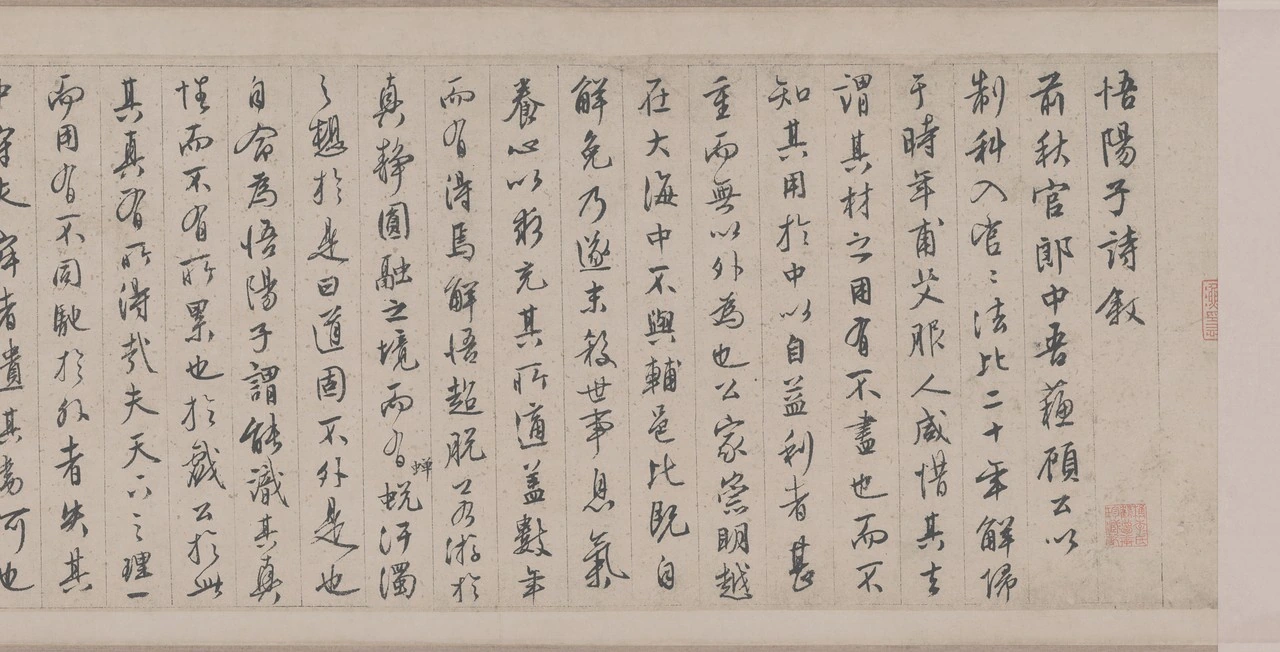 悟陽子詩敘
前秋官郎中吾蘇顧公以
制科入官官法比二十年解歸
于時年甫艾服人咸惜其去
謂其材之用有不盡也而不
知其用於中以自益利者甚
重而無以外為也公家崇明越
在大海中不與輔邑比既自
解免乃遂末殺世事息氣
養心以求充其所適蓋數年
而有得焉解悟超脫若游於
真靜圓融之境而有蟬蛻汙濁
之想於是曰道固不外是也
自命為悟陽子謂能識其真
性而不有所累也於戲公於此
其真有所得哉夫天下之理一
而用有不同馳於外者失其
中守